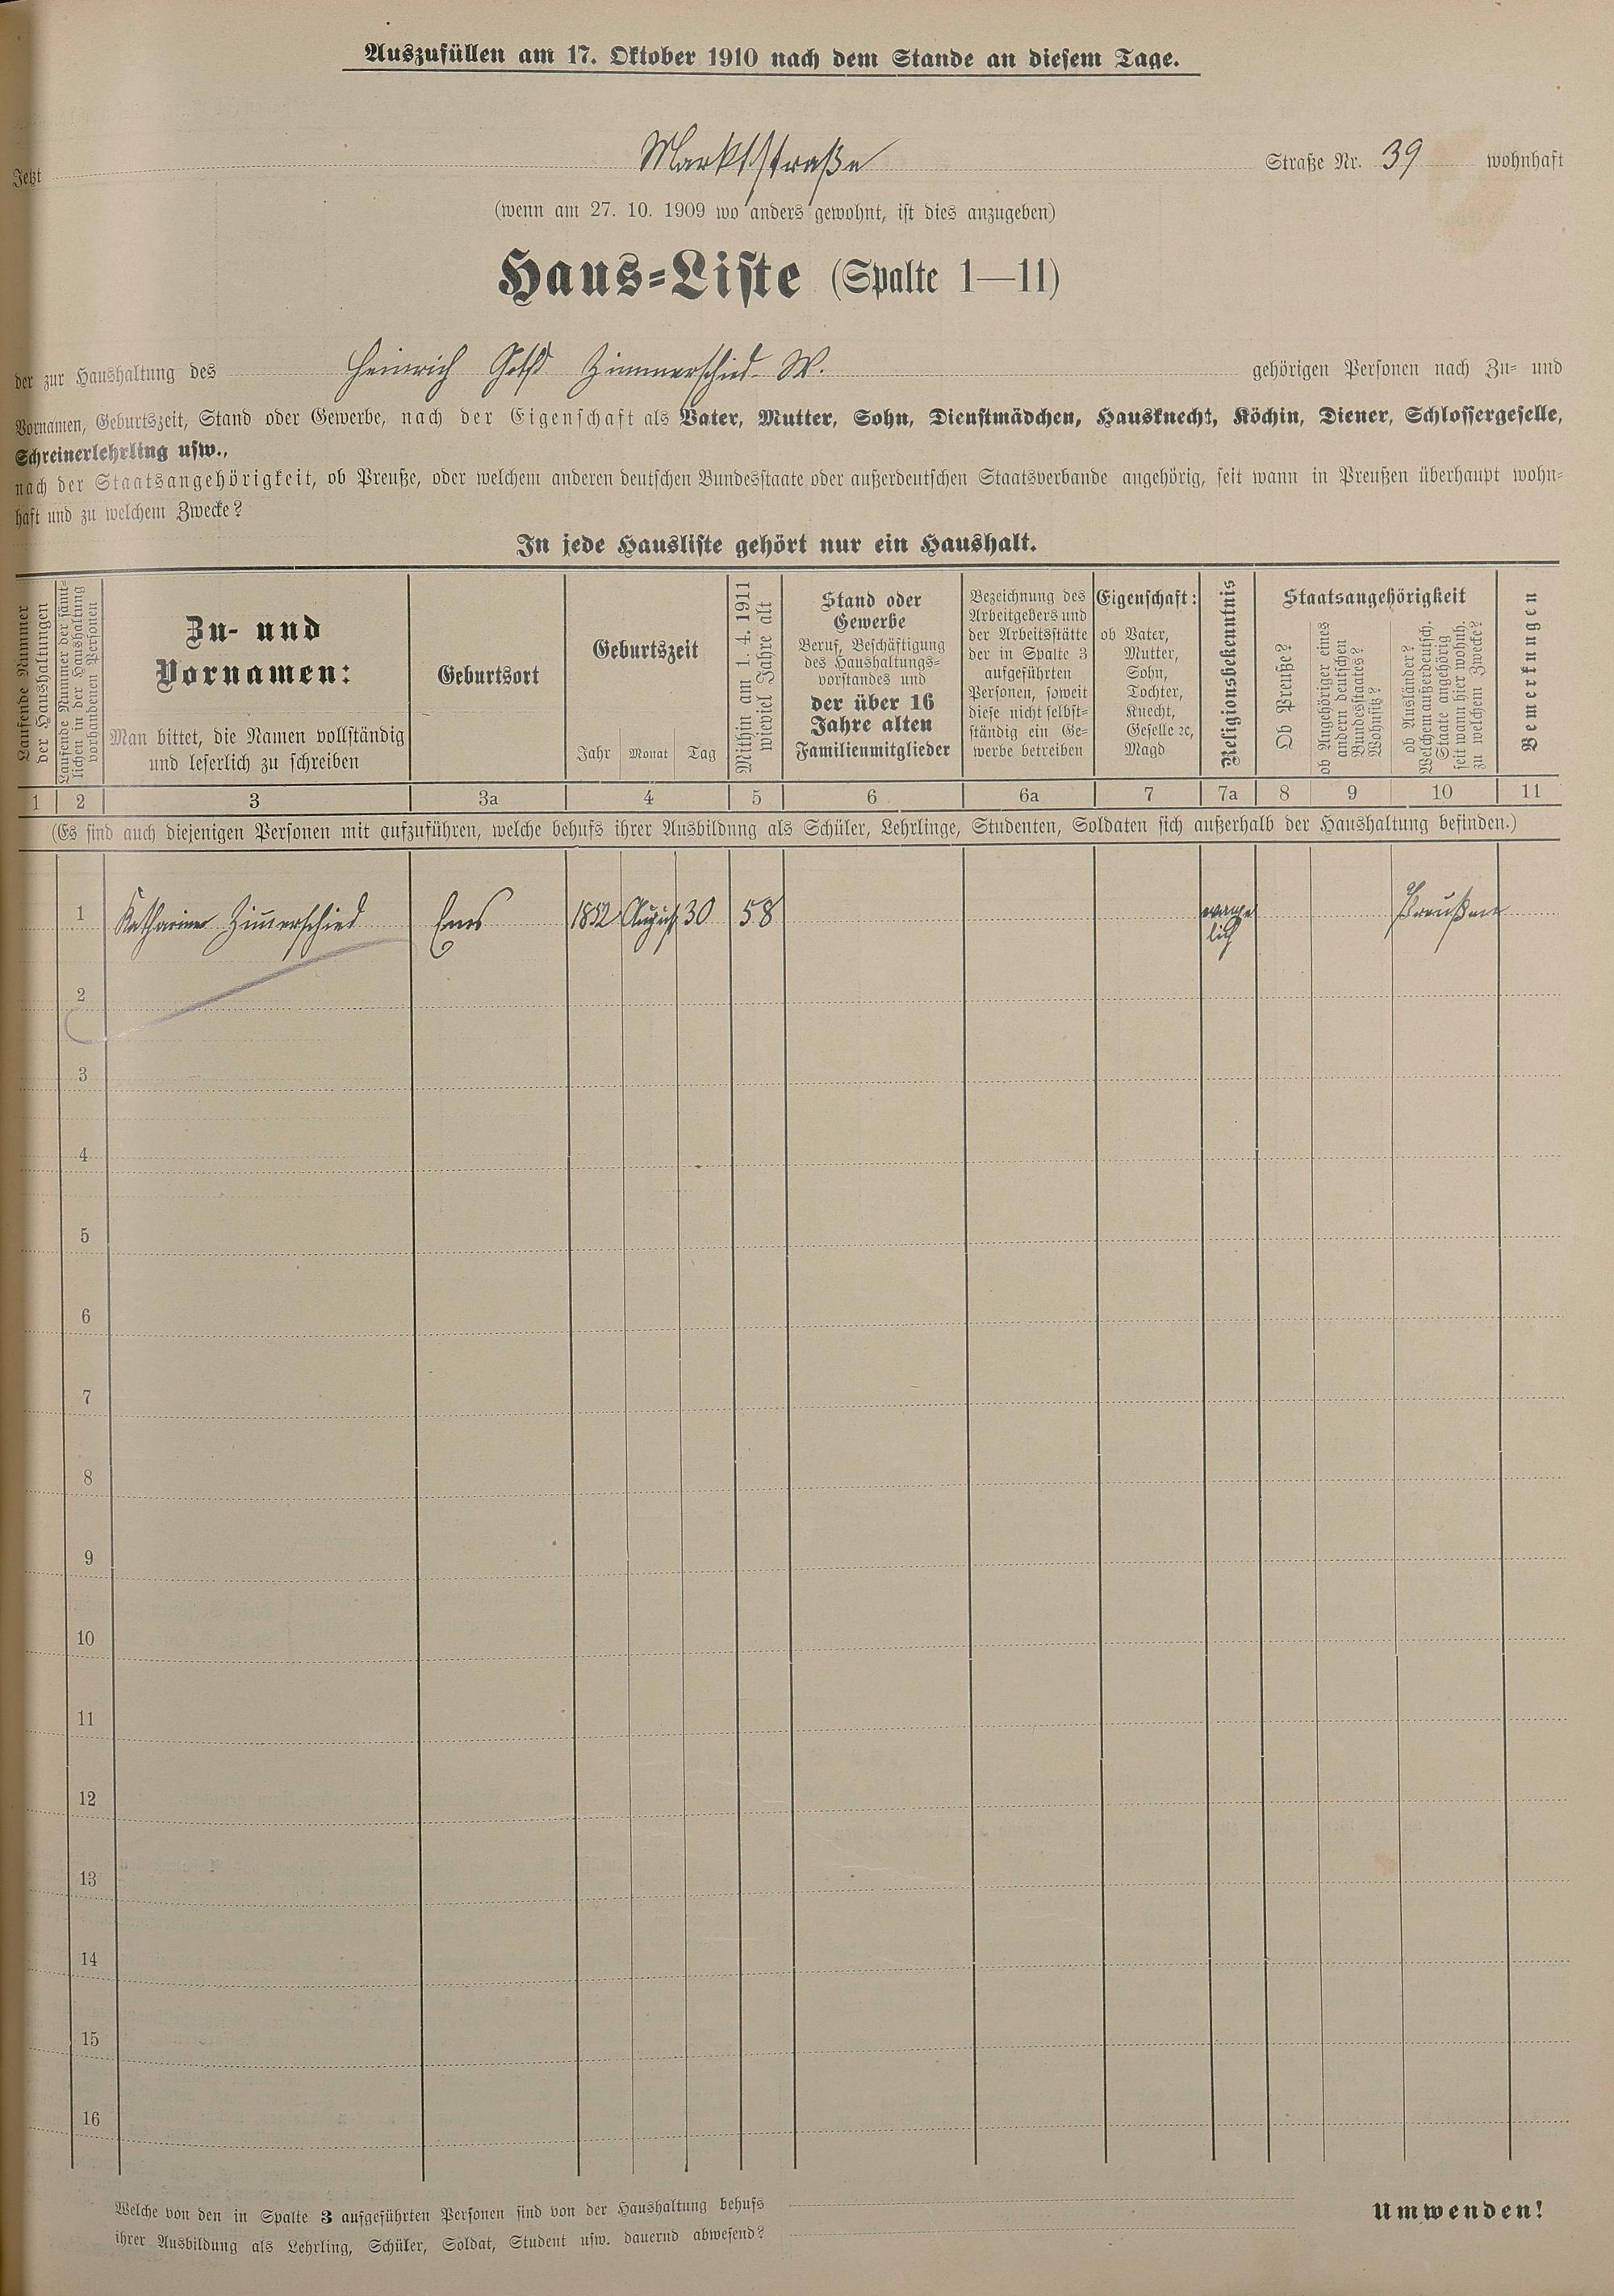 Auszufüllen am 17. Oktober 1910 nach dem Stande an diesem Tage.
Jetzt Marktstraße Straße Nr. 39 wohnhaft
(wenn am 27. 10. 1909 wo anders gewohnt, ist dies anzugeben)
Haus-Liste (Spalte 1—11)
der zur Haushaltung des Heinrich Zimmerschied W. gehörigen Personen nach Zu- und
Vornamen, Geburtszeit, Stand oder Gewerbe, nach der Eigenschaft als Vater, Mutter, Sohn, Dienstmädchen, Hausknecht, Köchin, Diener, Schlossergeselle,
Schreinerlehrling usw.,
nach der Staatsangehörigkeit, ob Preuße, oder welchem anderen deutschen Bundesstaate oder außerdeutschen Staatsverbande angehörig, seit wann in Preußen überhaupt wohn-
haft und zu welchem Zwecke?
In jede Hausliste gehört nur ein Haushalt.
Laufende Nummer
der Haushaltungen
Laufende Nummer der sämt-
lichen in der Haushaltung
vorhandenen Personen
Zu- und
Vornamen:
Man bittet, die Namen vollständig
und leserlich zu schreiben
Geburtsort
Geburtszeit
Jahr Monat Tag
Mithin am 1. 4. 1911
wieviel Jahre alt
Stand oder
Gewerbe
Beruf, Beschäftigung
des Haushaltungs-
vorstandes und
der über 16
Jahre alten
Familienmitglieder
Bezeichnung des
Arbeitgebers und
der Arbeitsstätte
der in Spalte 3
aufgeführten
Personen, soweit
diese nicht selbst-
ständig ein Ge-
werbe betreiben
Eigenschaft:
ob Vater,
Mutter,
Sohn,
Tochter,
Knecht,
Geselle ꝛc,
Magd
Religionsbekenntnis
Staatsangehörigkeit
Ob Preuße?
ob Angehöriger eines
andern deutschen
Bundesstaates?
Wohnsitz?
ob Ausländer?
Welchem außerdeutsch.
Staate angehörig
seit wann hier wohnh.
zu welchem Zwecke?
Bemerkungen
1 2 3 3a 4 5 6 6a 7 7a 8 9 10 11
(Es sind auch diejenigen Personen mit aufzuführen, welche behufs ihrer Ausbildung als Schüler, Lehrlinge, Studenten, Soldaten sich außerhalb der Haushaltung befinden.)
1 Katharine Zimerschied Ems 1852 August 30 58 evange Preußen
lich
2
3
4
5
6
7
8
9
10
11
12
13
14
15
16
Welche von den in Spalte 3 aufgeführten Personen sind von der Haushaltung behufs
ihrer Ausbildung als Lehrling, Schüler, Soldat, Student usw. dauernd abwesend?
Umwenden!